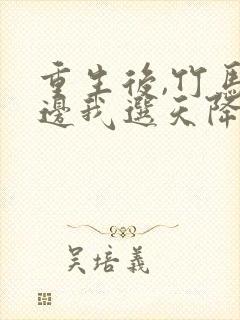 重生後,竹馬
邊我選天降
吳培義